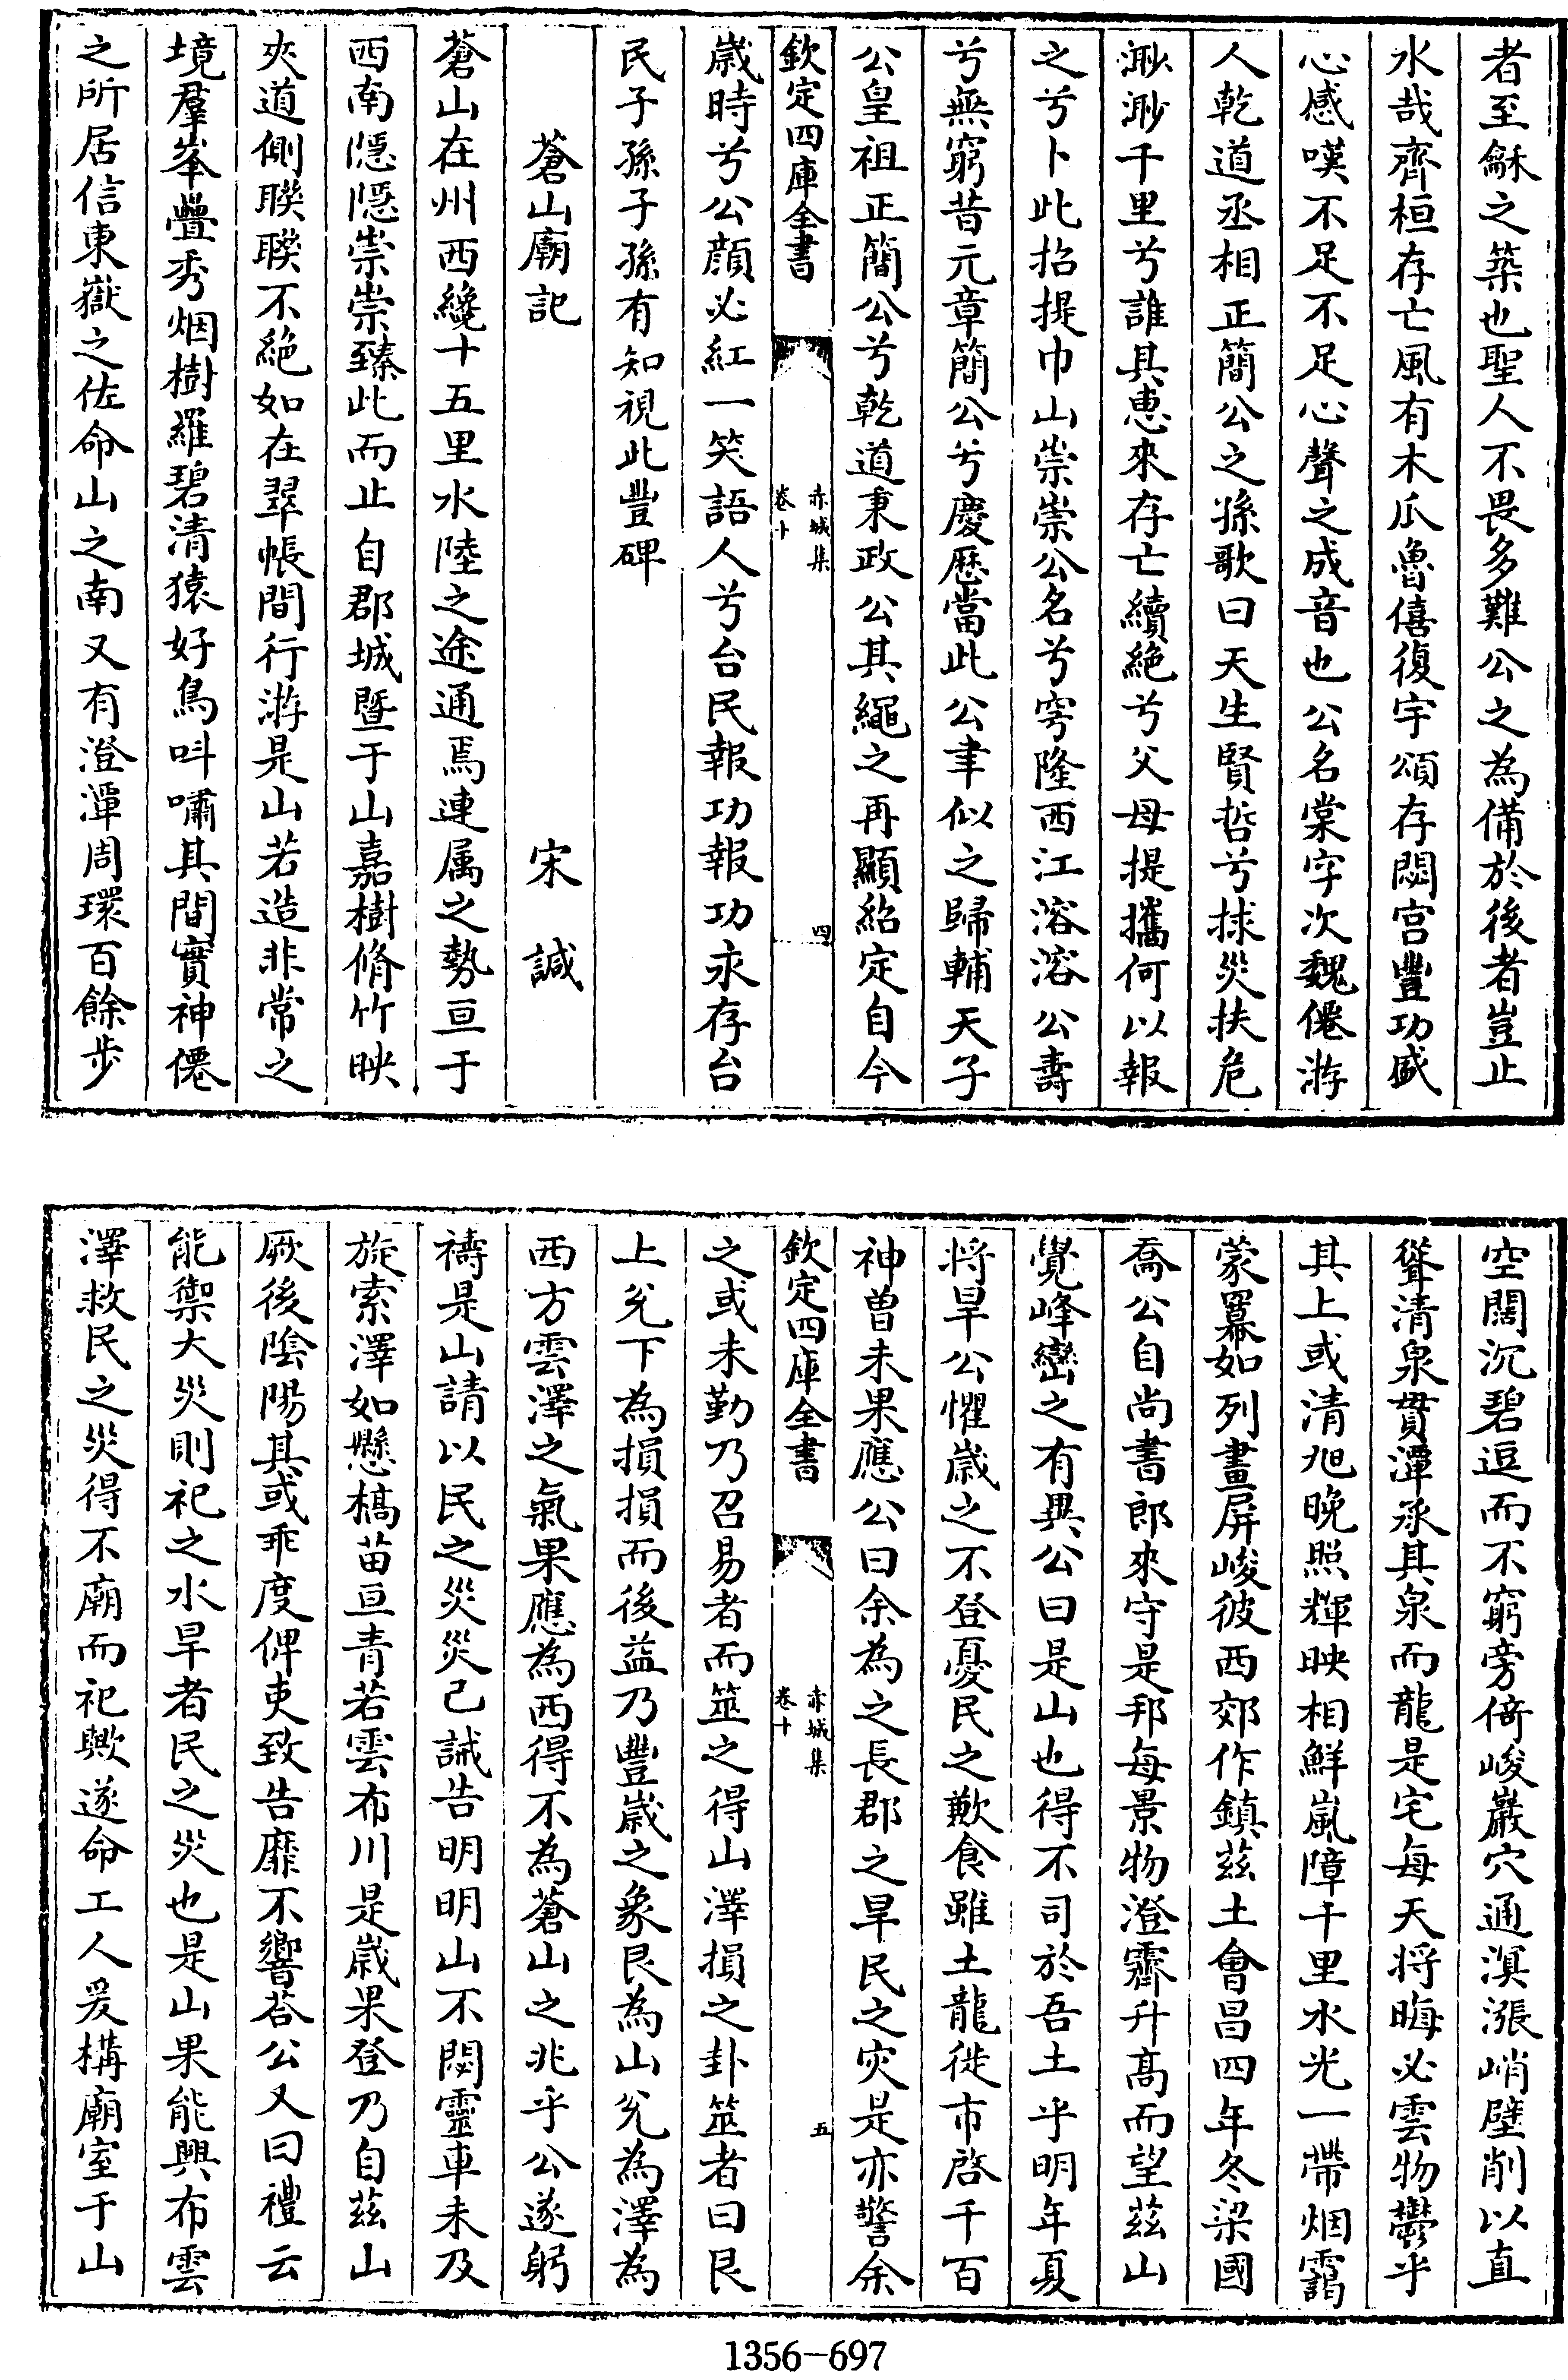 者至龢之築也聖人不畏多難公之為備於後者豈止
水哉齊桓存亡風有木瓜魯僖復宇頌存閟宫豐功盛
心感嘆不足不足心聲之成音也公名棠字次魏僊游
人乾道丞相正簡公之孫歌曰天生賢哲兮捄災扶危
渺渺千里兮誰其恵來存亡續絶兮父母提攜何以報
之兮卜此招提巾山崇崇公名兮穹隆西江溶溶公壽
兮無窮昔元章簡公兮慶厯當此公聿似之歸輔天子
公皇祖正簡公兮乾道秉政公其繩之再顯紹定自今
欽定四庫全書
赤城集
卷十
四
歲時兮公顔必紅一笑語人兮台民報功報功永存台
民子孫子孫有知視此豐碑
蒼山廟記 宋 諴
蒼山在州西纔十五里水陸之途通焉連属之勢亘于
西南隱隱崇崇臻此而止自郡城暨于山嘉樹脩竹映
夾道側聮聮不絶如在翠帳間行游是山若造非常之
境羣峯疊秀烟樹羅碧清猿好鳥呌嘯其間實神僊
之所居信東嶽之佐命山之南又有澄潭周環百餘步
空闊沉碧逗而不窮旁倚峻巖穴通溟漲峭壁削以直
聳清泉貫潭承其泉而龍是宅每天将晦必雲物鬱乎
其上或清旭晚照輝映相鮮嵐障千里水光一帶烟靄
蒙冪如列畫屏峻彼西郊作鎮兹土會昌四年冬梁國
喬公自尚書郎來守是邦每景物澄霽升髙而望兹山
覺峰巒之有異公曰是山也得不司於吾土乎明年夏
将旱公懼歲之不登憂民之歉食雖土龍徙市啓千百
神曽未果應公曰余為之長郡之旱民之灾是亦警余
欽定四庫全書
赤城集
卷十
五
之或未勤乃召易者而筮之得山澤損之卦筮者曰艮
上兊下為損損而後益乃豐歲之象艮為山兊為澤為
西方雲澤之氣果應為西得不為蒼山之兆乎公遂躬
禱是山請以民之災災己誡告明明山不閟靈車未及
旋索澤如懸槁苗亘青若雲布川是歲果登乃自兹山
厥後隂陽其或乖度俾吏致告靡不響荅公又曰禮云
能禦大災則祀之水旱者民之災也是山果能興布雲
澤救民之災得不廟而祀歟遂命工人爰構廟室于山
1356-697